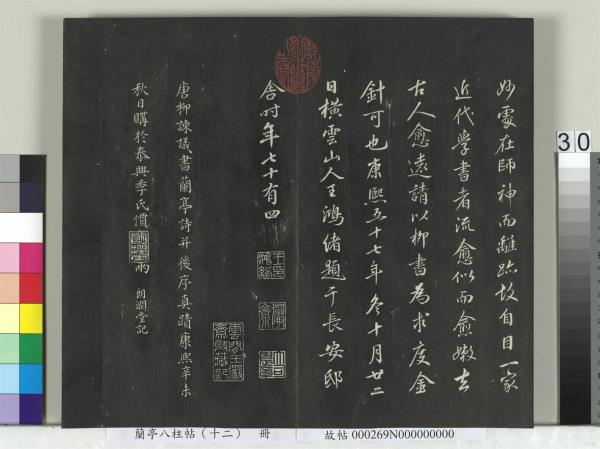 妙處在師神而離跡故自目一家
近代學書者流愈似而愈嫩去
古人愈遠請以柳書為求度金
針可也康熙五十七年冬十月廿二
日橫雲山人王鴻緒題于長安邸
舍時年七十有四
唐柳諫議書蘭亭詩并後序真蹟康熙辛未
秋日購於泰興季氏價
兩
朗潤堂記
30
蘭亭八柱帖（十二） 冊
故帖 000269N000000000